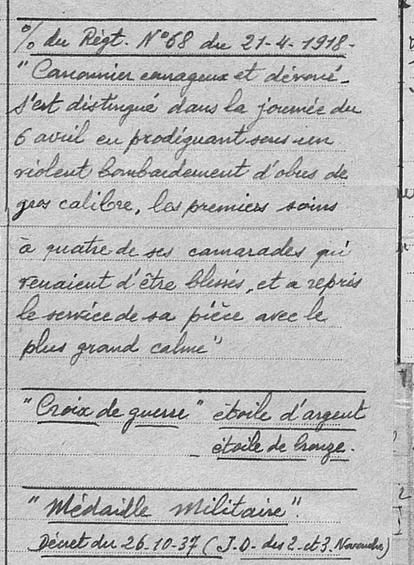 % du Régt. N°68 du 21-4-1918-
"Canonnier courageux et dévoué_
s'est distingué dans la journée du
6 avril en prodiguant sous un
violent bombardement d'obus de
gros calibre, les premiers soins
à quatre de ses camarades qui
venaient d'être blessés, et a repris
le service de sa pièce avec le
plus grand calme"
"Croix de guerre" étoile d'argent
_ étoile de bronze.
"Médaille Militaire".
Décret du 26-10-37 (J.O. des 2 et 3 Novembre)